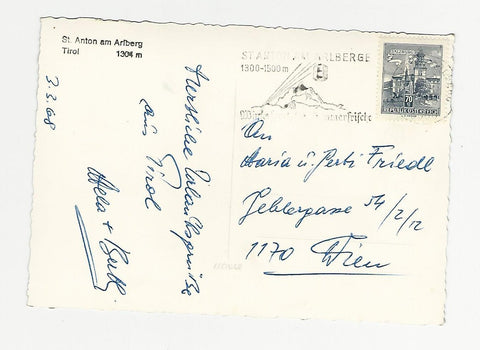 St. Anton am Arlberg
Tirol 1304 m
3.3.68
Herzliche Urlaubsgrüße
aus Tirol
ST. ANTON AM ARLBERGE
1300-1500 m
70
REPUBLIK ÖSTERREICH
An
Maria u. Berti Friedl
Geblergasse 54/2/12
1170 Wien